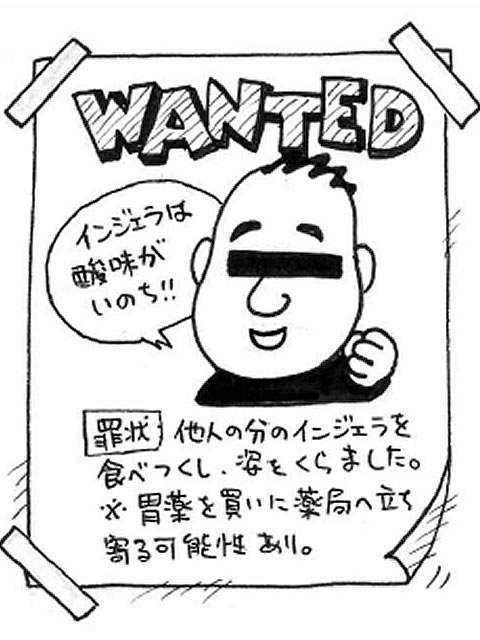 WANTED
インジェラは
酸味が
いのち!!
罪状 他人の分のインジェラを
食べつくし、姿をくらました。
※胃薬を買いに薬局へ立ち
寄る可能性あり。